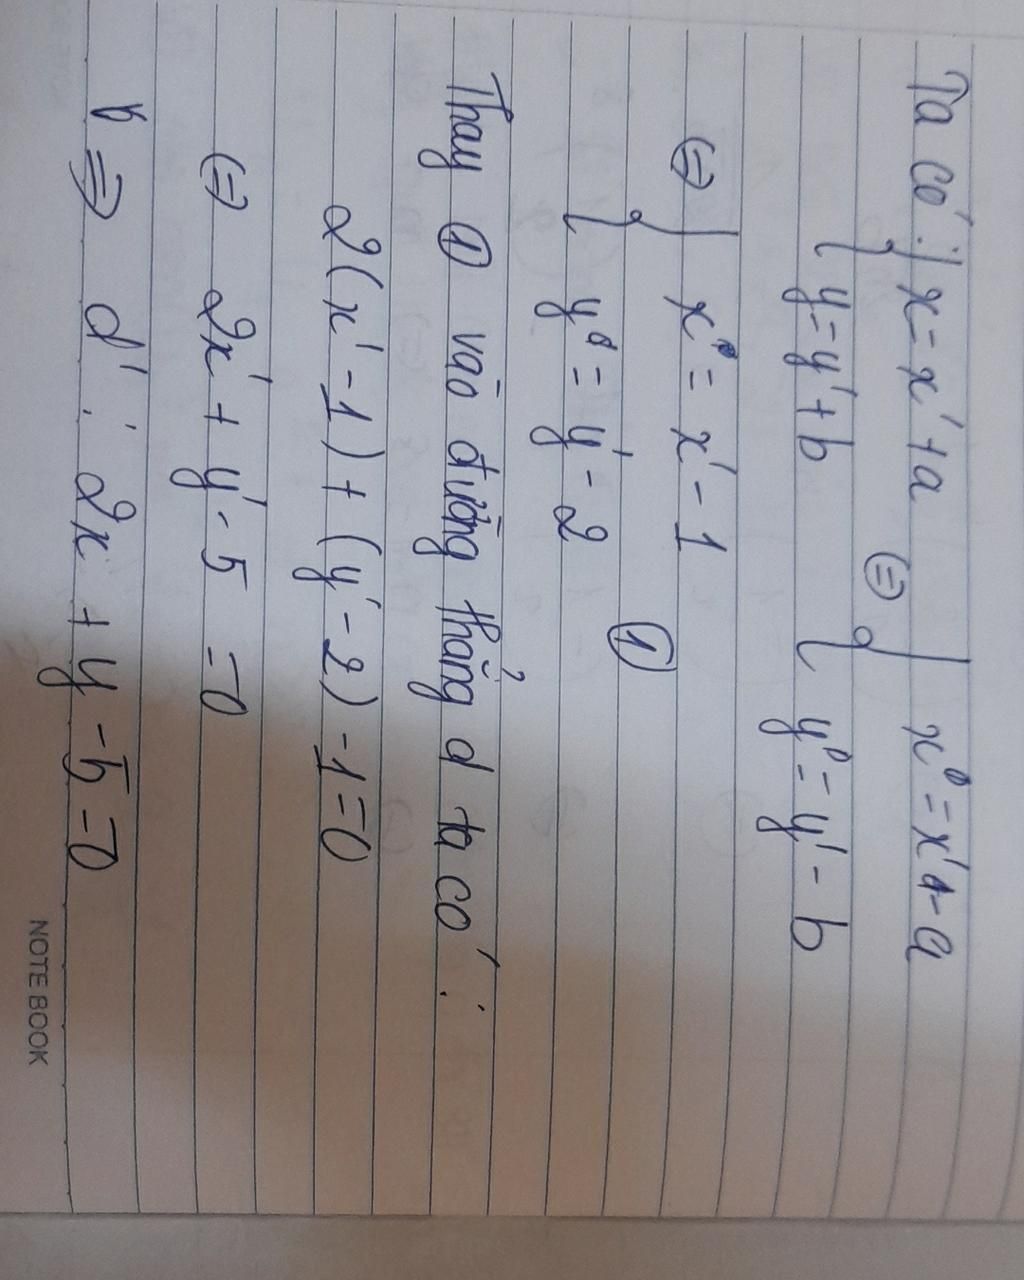 Ta có: { x = x' + a ⇔ { x = x' - a
{ y = y' + b { y = y' - b
⇔ { x = x' - 1
{ y = y' - 2 ①
Thay ① vào đường thẳng d ta có:
2(x' - 1) + (y' - 2) - 1 = 0
⇔ 2x' + y' - 5 = 0
⇒ d': 2x + y - 5 = 0
NOTE BOOK